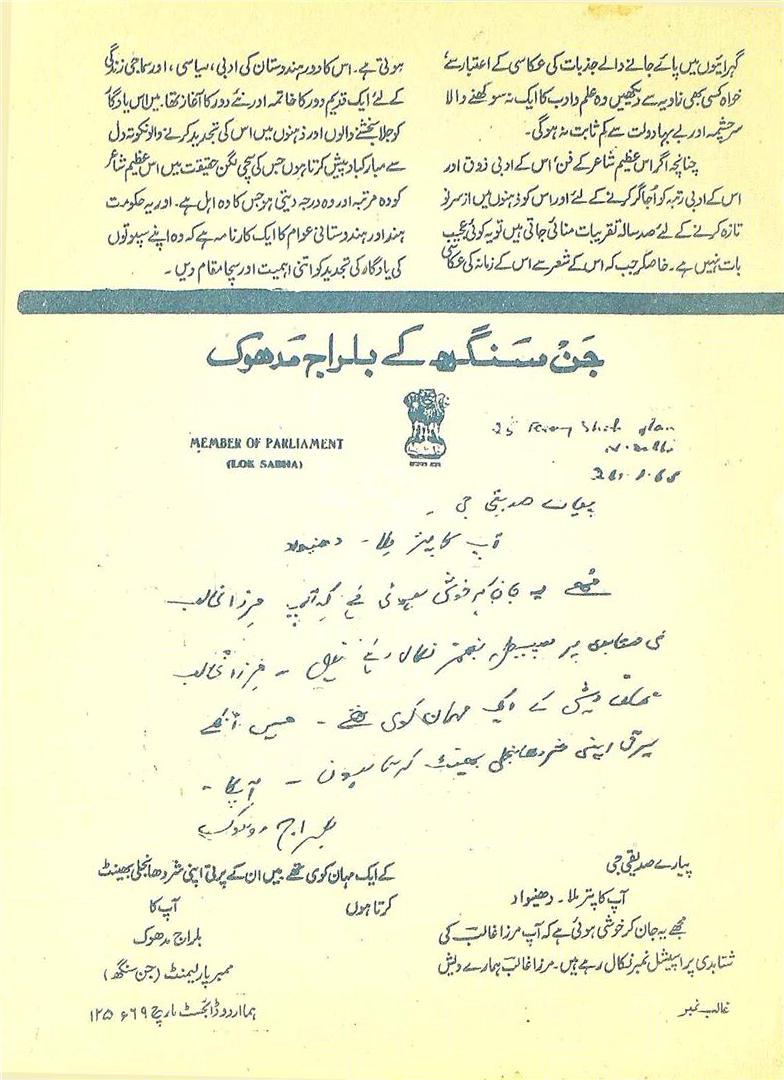 گہرائیوں میں پائے جانے والے جذبات کی عکاسی کے اعتبار سے
خواہ کسی بھی زاویہ سے دیکھیں وہ علم وادب کا ایک نہ سوکھنے والا
سرچشمہ اور بے بہا دولت سے کم ثابت نہ ہوگی۔
چنانچہ اگر اس عظیم شاعر کے فن، اس کے ادبی ذوق اور
اس کے ادبی رتبہ کو اُجاگر کرنے کے لئے اور اس کو ذہنوں میں از سر نو
تازہ کرنے کے لئے صد سالہ تقریبات منائی جاتی ہیں تو یہ کوئی عجیب
بات نہیں ہے۔ خاصکر جب کہ اس کے شعر سے اس کے زمانہ کی عکاسی
ہوتی ہے۔ اس کا دور ہندوستان کی ادبی، سیاسی، اور سماجی زندگی
کے لئے ایک قدیم دور کا خاتمہ اور نئے دور کا آغاز تھا۔ میں اس یادگار
کو جلا بخشنے والوں اور ذہنوں میں اس کی تجدید کرنے والونکو تہ دل
سے مبارکباد پیش کرتا ہوں جس کی سچی لگن حقیقت میں اس عظیم شاعر
کو وہ مرتبہ اور وہ درجہ دیتی ہو جس کا وہ اہل ہے۔ اور یہ حکومت
ہند اور ہندوستانی عوام کا ایک کارنامہ ہے کہ وہ اپنے سپوتوں
کی یادگار کی تجدید کو اتنی اہمیت اور سچا مقام دیں۔
جَن سَنگھ کے بلراج مَدھوک
MEMBER OF PARLIAMENT
(LOK SABHA)
25
N. Delhi
پیارے صدیقی جی۔
آپ کا پتر ملا۔ دھنیواد
مجھے یہ جان کر خوشی ہوئی ہے کہ آپ مرزا غالب
کی شتابدی پر سپیشل نمبر نکال رہے ہیں۔ مرزا غالب
ہمارے دیش کے ایک مہان کوی تھے۔ میں انکے
پرتی اپنی شردھانجلی بھینٹ کرتا ہوں۔ آپکا۔
بلراج مدھوک
پیارے صدیقی جی
آپ کا پتر ملا۔ دھنیواد
مجھے یہ جان کر خوشی ہوئی ہے کہ آپ مرزا غالب کی
شتابدی پر اسپیشل نمبر نکال رہے ہیں۔ مرزا غالب ہمارے دیش
کے ایک مہان کوی تھے میں ان کے پرتی اپنی شردھانجلی بھینٹ
کرتا ہوں
آپ کا
بلراج مدھوک
ممبر پارلیمنٹ (جن سنگھ)
غالب نمبر
ہما اردو ڈائجسٹ مارچ ۶۹ء ۱۲۵